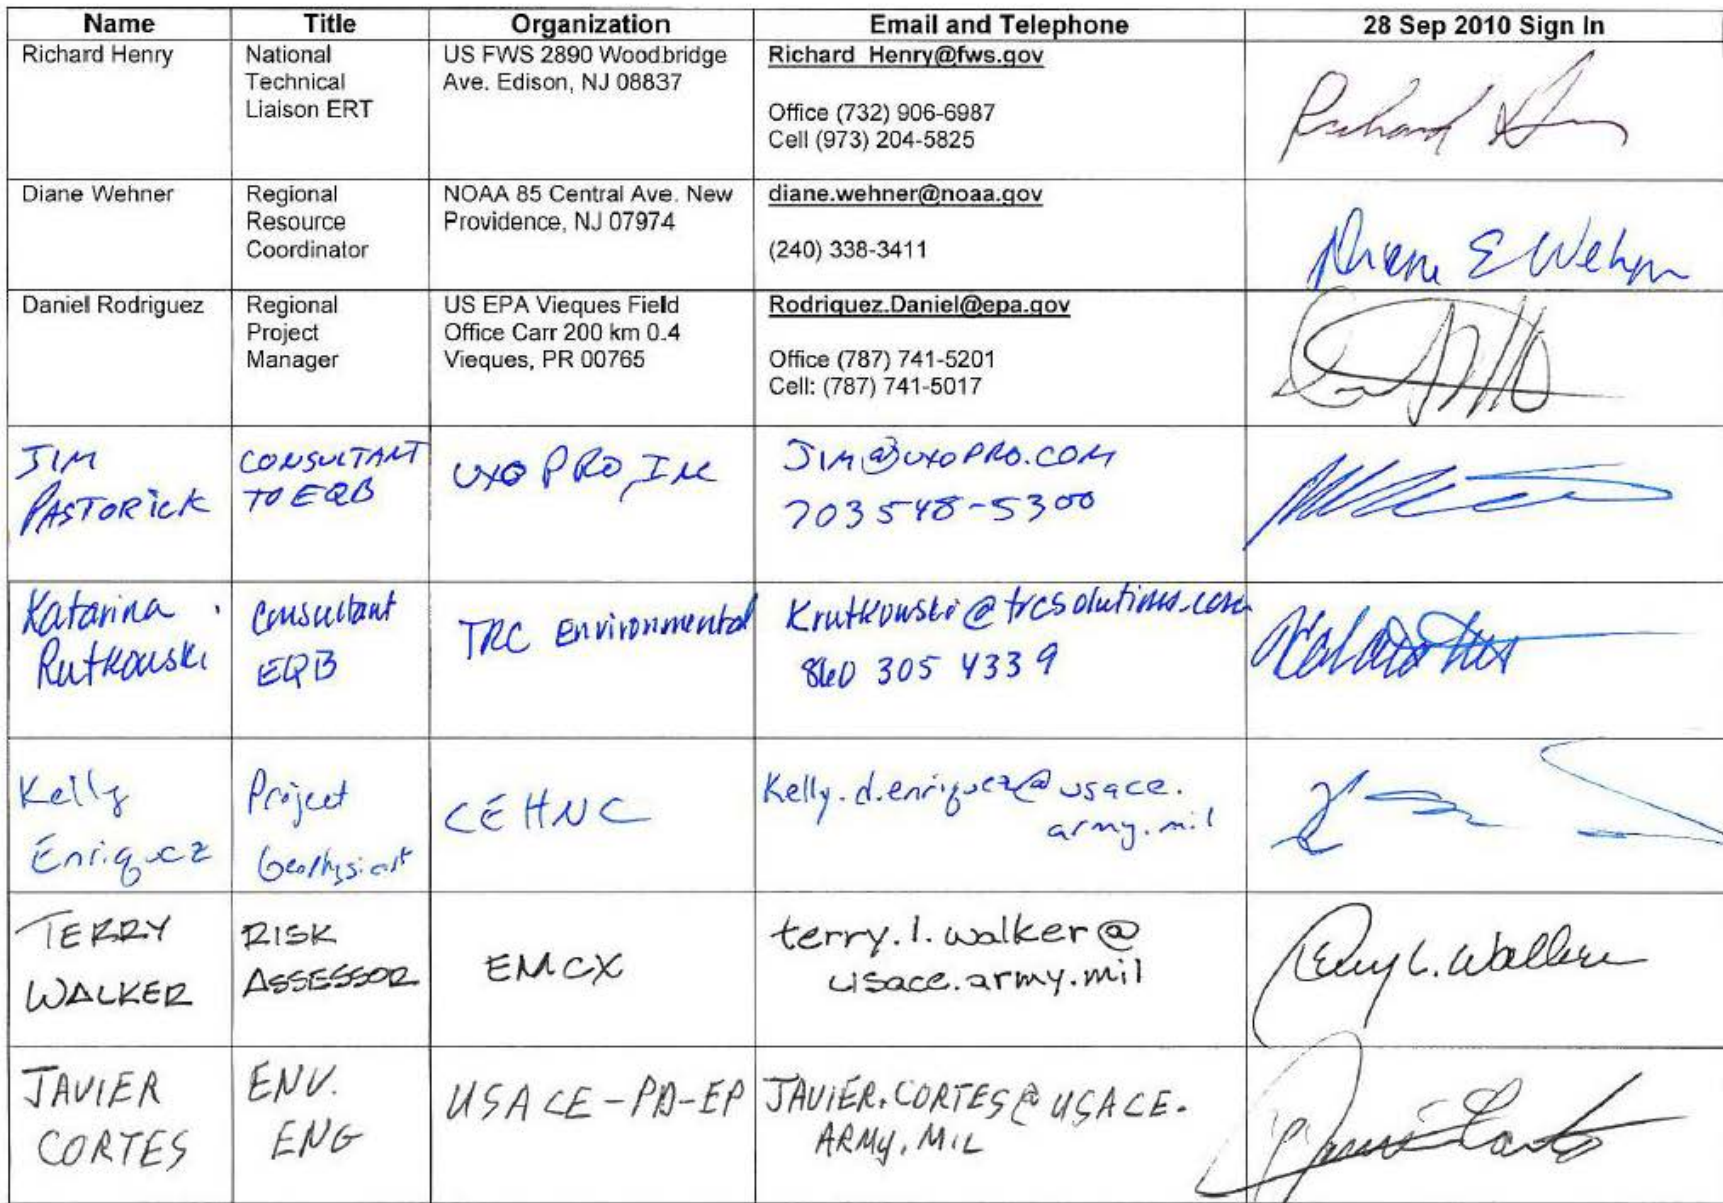 Name Title Organization Email and Telephone 28 Sep 2010 Sign In
Richard Henry
National
Technical
Liaison ERT
US FWS 2890 Woodbridge
Ave. Edison, NJ 08837
Richard Henry@fws.gov
Office (732) 906-6987
Cell (973) 204-5825
Richard
Diane Wehner
Regional
Resource
Coordinator
NOAA 85 Central Ave. New
Providence, NJ 07974
diane.wehner@noaa.gov
(240) 338-3411
Diane E Wehner
Daniel Rodriguez
Regional
Project
Manager
US EPA Vieques Field
Office Carr 200 km 0.4
Vieques, PR 00765
Rodriquez.Daniel@epa.gov
Office (787) 741-5201
Cell: (787) 741-5017
JIM
PASTORICK
CONSULTANT
TO EQB
UXO PRO, INC
JIM@UXOPRO.COM
703 548-5300
Katarina
Rutkowski
Consultant
EQB
TRC Environmental
Krutkowski@trcsolutions.com
860 305 4339
Kelly
Enriquez
Project
Geophysicist
CEHNC
Kelly.d.enriquez@usace.
army.mil
TERRY
WALKER
RISK
ASSESSOR
EMCX
terry.l.walker@
usace.army.mil
Terry L. Walker
JAVIER
CORTES
ENV.
ENG
USACE-PD-EP
JAVIER.CORTES@USACE.
ARMY.MIL